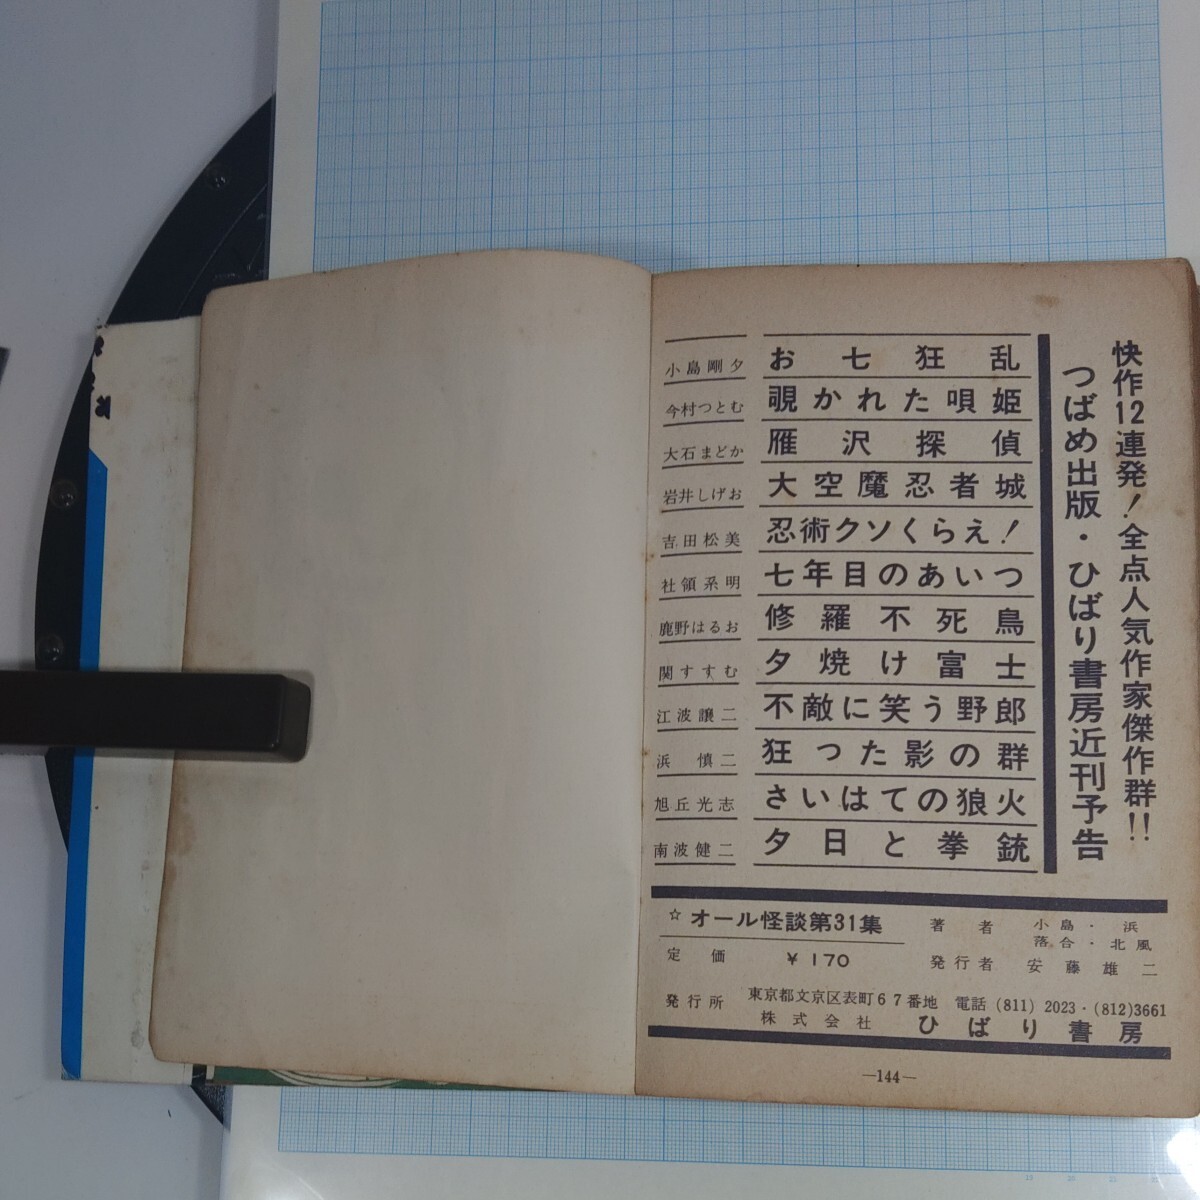 快作12連発！全点人気作家傑作群!!
つばめ出版・ひばり書房近刊予告
お七狂乱 小島剛夕
覗かれた唄姫 今村つとむ
雁沢探偵 大石まどか
大空魔忍者城 岩井しげお
忍術クソくらえ！ 吉田松美
七年目のあいつ 社領系明
修羅不死鳥 鹿野はるお
夕焼け富士 関すすむ
不敵に笑う野郎 江波譲二
狂った影の群 浜慎二
さいはての狼火 旭丘光志
夕日と拳銃 南波健二
☆オール怪談第31集
定価 ¥170
著者 小島・浜
落合・北風
発行者 安藤雄二
発行所 東京都文京区表町67番地 電話(811)2023・(812)3661
株式会社 ひばり書房
—144—